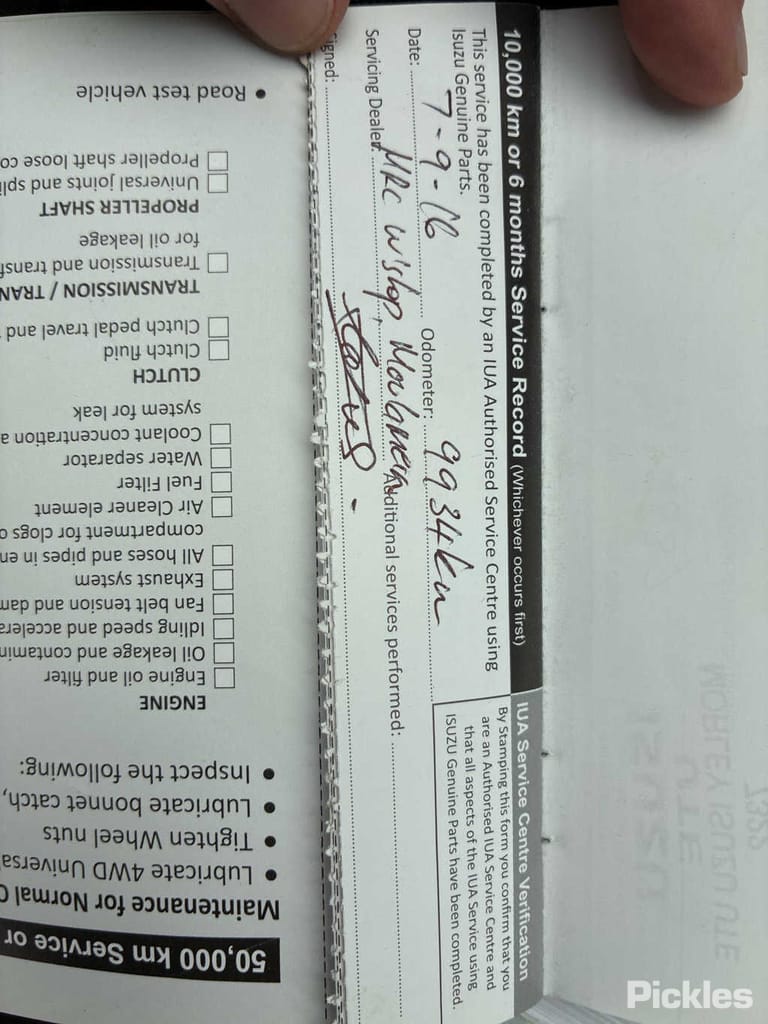 10,000 km or 6 months Service Record (Whichever occurs first)
This service has been completed by an IUA Authorised Service Centre using
Isuzu Genuine Parts.
Date: 7-9-16 Odometer: 9934km
Servicing Dealer MRC W'shop Additional services performed:
igned:
IUA Service Centre Verification
By Stamping this form you confirm that you
are an Authorised IUA Service Centre and
that all aspects of the IUA Service using
ISUZU Genuine Parts have been completed.
50,000 km Service or
Maintenance for Normal
• Lubricate 4WD Universa
• Tighten Wheel nuts
• Lubricate bonnet catch,
• Inspect the following:
ENGINE
Engine oil and filter
Oil leakage and contamin
Idling speed and accelera
Fan belt tension and dam
Exhaust system
All hoses and pipes in en
compartment for clogs o
Air Cleaner element
Fuel Filter
Water separator
Coolant concentration a
system for leak
CLUTCH
Clutch fluid
Clutch pedal travel and
TRANSMISSION / TRAN
Transmission and transf
for oil leakage
PROPELLER SHAFT
Universal joints and spli
Propeller shaft loose co
• Road test vehicle
Pickles